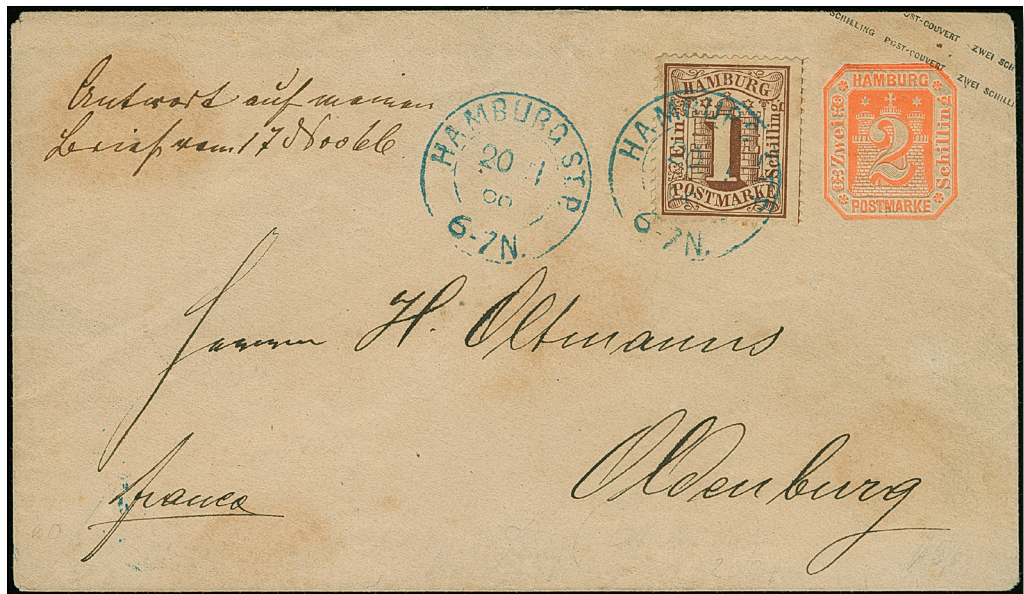 SCHILLING POST-COUVERT ZWEI SCHI
POST-COUVERT
ZWEI SCHILLI
Antwort auf meinen
Brief vom 17 Nov 66
HAMBURG ST.P.
20 11
66
6-7N.
HAMBURG
Ein
1
Schilling
POSTMARKE
HAMBURG ST.P.
6-7N.
HAMBURG
Zwei
2
Schilling
POSTMARKE
Herrn H. Oltmanns
Oldenburg
franco